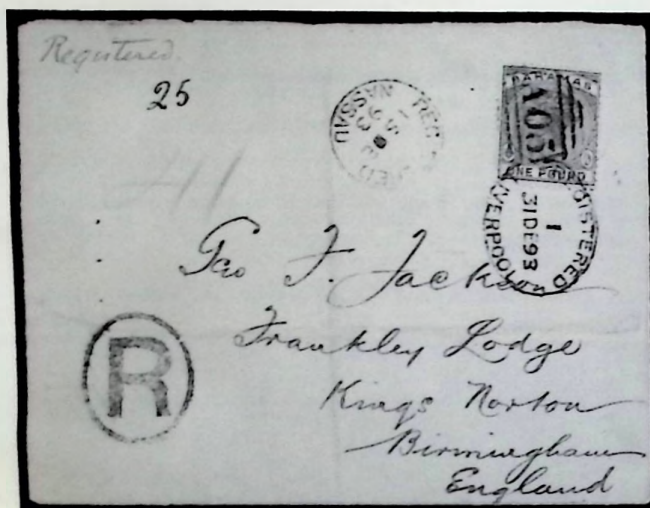 Registered
25
REGISTERED
NASSAU
BAHAMAS
A05
ONE POUND
REGISTERED
1
31DE93
LIVERPOOL
41
Geo F. Jackson
Frankley Lodge
Kings Norton
Birmingham
England
R